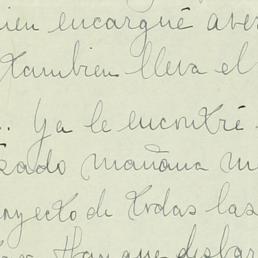 ien encargué aver
tambien lleva el
.. Ya le encontré
sado mañana m
royecto de todas las
Hay que